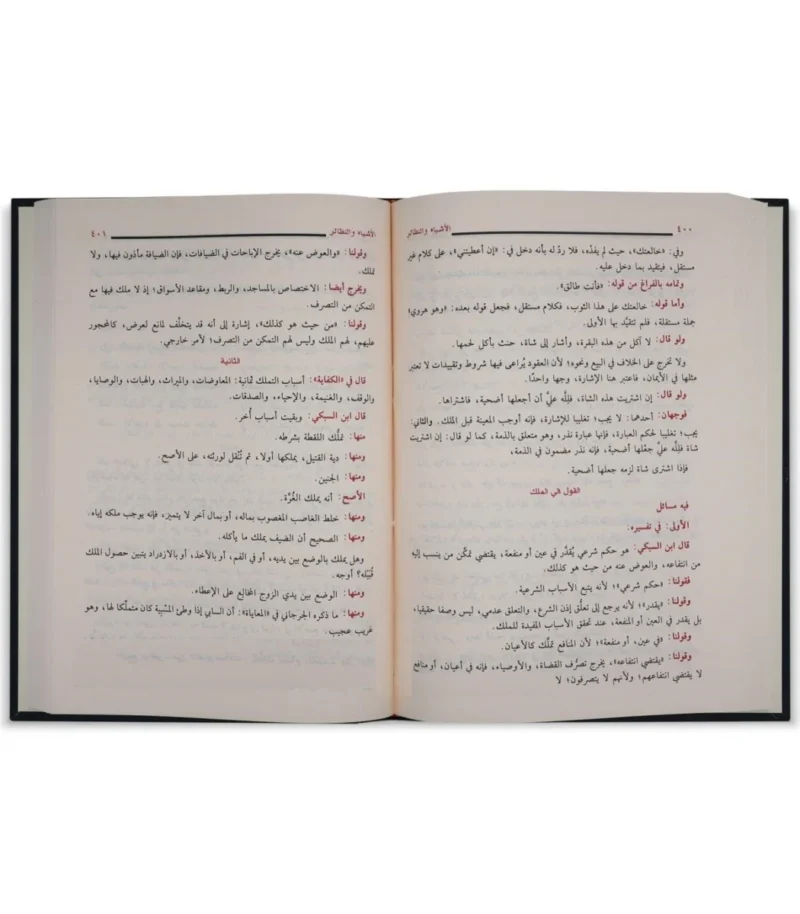 ٤٠٠ الأشباه والنظائر
وفي: «خالعتك»، حيث لم يفده، فلا ردّ له بأنه دخل في: «إن أعطيتني»، على كلام غير
مستقل، فيتقيد بما دخل عليه.
وتمامه بالفراغ من قوله: «فأنت طالق».
وأما قوله: خالعتك على هذا الثوب، فكلام مستقل، فجعل قوله بعده: «وهو هروي»
جملة مستقلة، فلم تتقيَّد بها الأولى.
ولو قال: لا آكل من هذه البقرة، وأشار إلى شاة، حنث بأكل لحمها.
ولا تخرج على الخلاف في البيع ونحوه؛ لأن العقود يُراعى فيها شروط وتقييدات لا تعتبر
مثلها في الأيمان، فاعتبر هنا الإشارة، وجها واحدًا.
ولو قال: إن اشتريت هذه الشاة، فللَّه عليَّ أن أجعلها أضحية، فاشتراها.
فوجهان: أحدهما: لا يجب؛ تغليبا للإشارة، فإنه أوجب المعينة قبل الملك. والثاني:
يجب؛ تغليبا لحكم العبارة، فإنها عبارة نذر، وهو متعلق بالذمة، كما لو قال: إن اشتريت
شاة فللَّه عليَّ جعْلها أضحية، فإنه نذر مضمون في الذمة،
فإذا اشترى شاة لزمه جعلها أضحية.
القول في الملك
فيه مسائل
الأولى: في تفسيره:
قال ابن السبكي: هو حكم شرعي يُقدَّر في عين أو منفعة، يقتضي تمكّن من ينسب إليه
من انتفاعه، والعوض عنه من حيث هو كذلك.
فقولنا: «حكم شرعي»؛ لأنه يتبع الأسباب الشرعية.
وقولنا: «يقدر»؛ لأنه يرجع إلى تعلُّق إذن الشرع، والتعلق عدمي، ليس وصفا حقيقيا،
بل يقدر في العين أو المنفعة، عند تحقق الأسباب المفيدة للملك.
وقولنا: «في عين، أو منفعة»؛ لأن المنافع تملّك كالأعيان.
وقولنا: «يقتضي انتفاعه»، يخرج تصرُّف القضاة، والأوصياء، فإنه في أعيان، أو منافع
لا يقتضي انتفاعهم؛ ولأنهم لا يتصرفون؛ لا
الأشباه والنظائر ٤٠١
وقولنا: «والعوض عنه»، يخرج الإباحات في الضيافات، فإن الضيافة مأذون فيها، ولا
تملك.
ويخرج أيضا: الاختصاص بالمساجد، والربط، ومقاعد الأسواق؛ إذ لا ملك فيها مع
التمكن من التصرف.
وقولنا: «من حيث هو كذلك»، إشارة إلى أنه قد يتخلَّف لمانع لعرض، كالمحجور
عليهم، لهم الملك وليس لهم التمكن من التصرف؛ لأمر خارجي.
الثانية
قال في «الكفاية»: أسباب التملك ثمانية: المعاوضات، والميراث، والهبات، والوصايا،
والوقف، والغنيمة، والإحياء، والصدقات.
قال ابن السبكي: وبقيت أسباب أُخر.
منها: تملُّك اللقطة بشرطه.
ومنها: دية القتيل، يملكها أولا، ثم تُنْقل لورثته، على الأصح.
ومنها: الجنين.
الأصح: أنه يملك الغُرَّة.
ومنها: خلط الغاصب المغصوب بماله، أو بمال آخر لا يتميز، فإنه يوجب ملكه إياه.
ومنها: الصحيح أن الضيف يملك ما يأكله.
وهل يملك بالوضع بين يديه، أو في الفم، أو بالأخذ، أو بالازدراد يتبين حصول الملك
قُبَيْله؟ أوجه.
ومنها: الوضع بين يدي الزوج المخالع على الإعطاء.
ومنها: ما ذكره الجرجاني في «المعاياة»: أن السابي إذا وطئ المسْبية كان متملّكا لها، وهو
غريب عجيب.